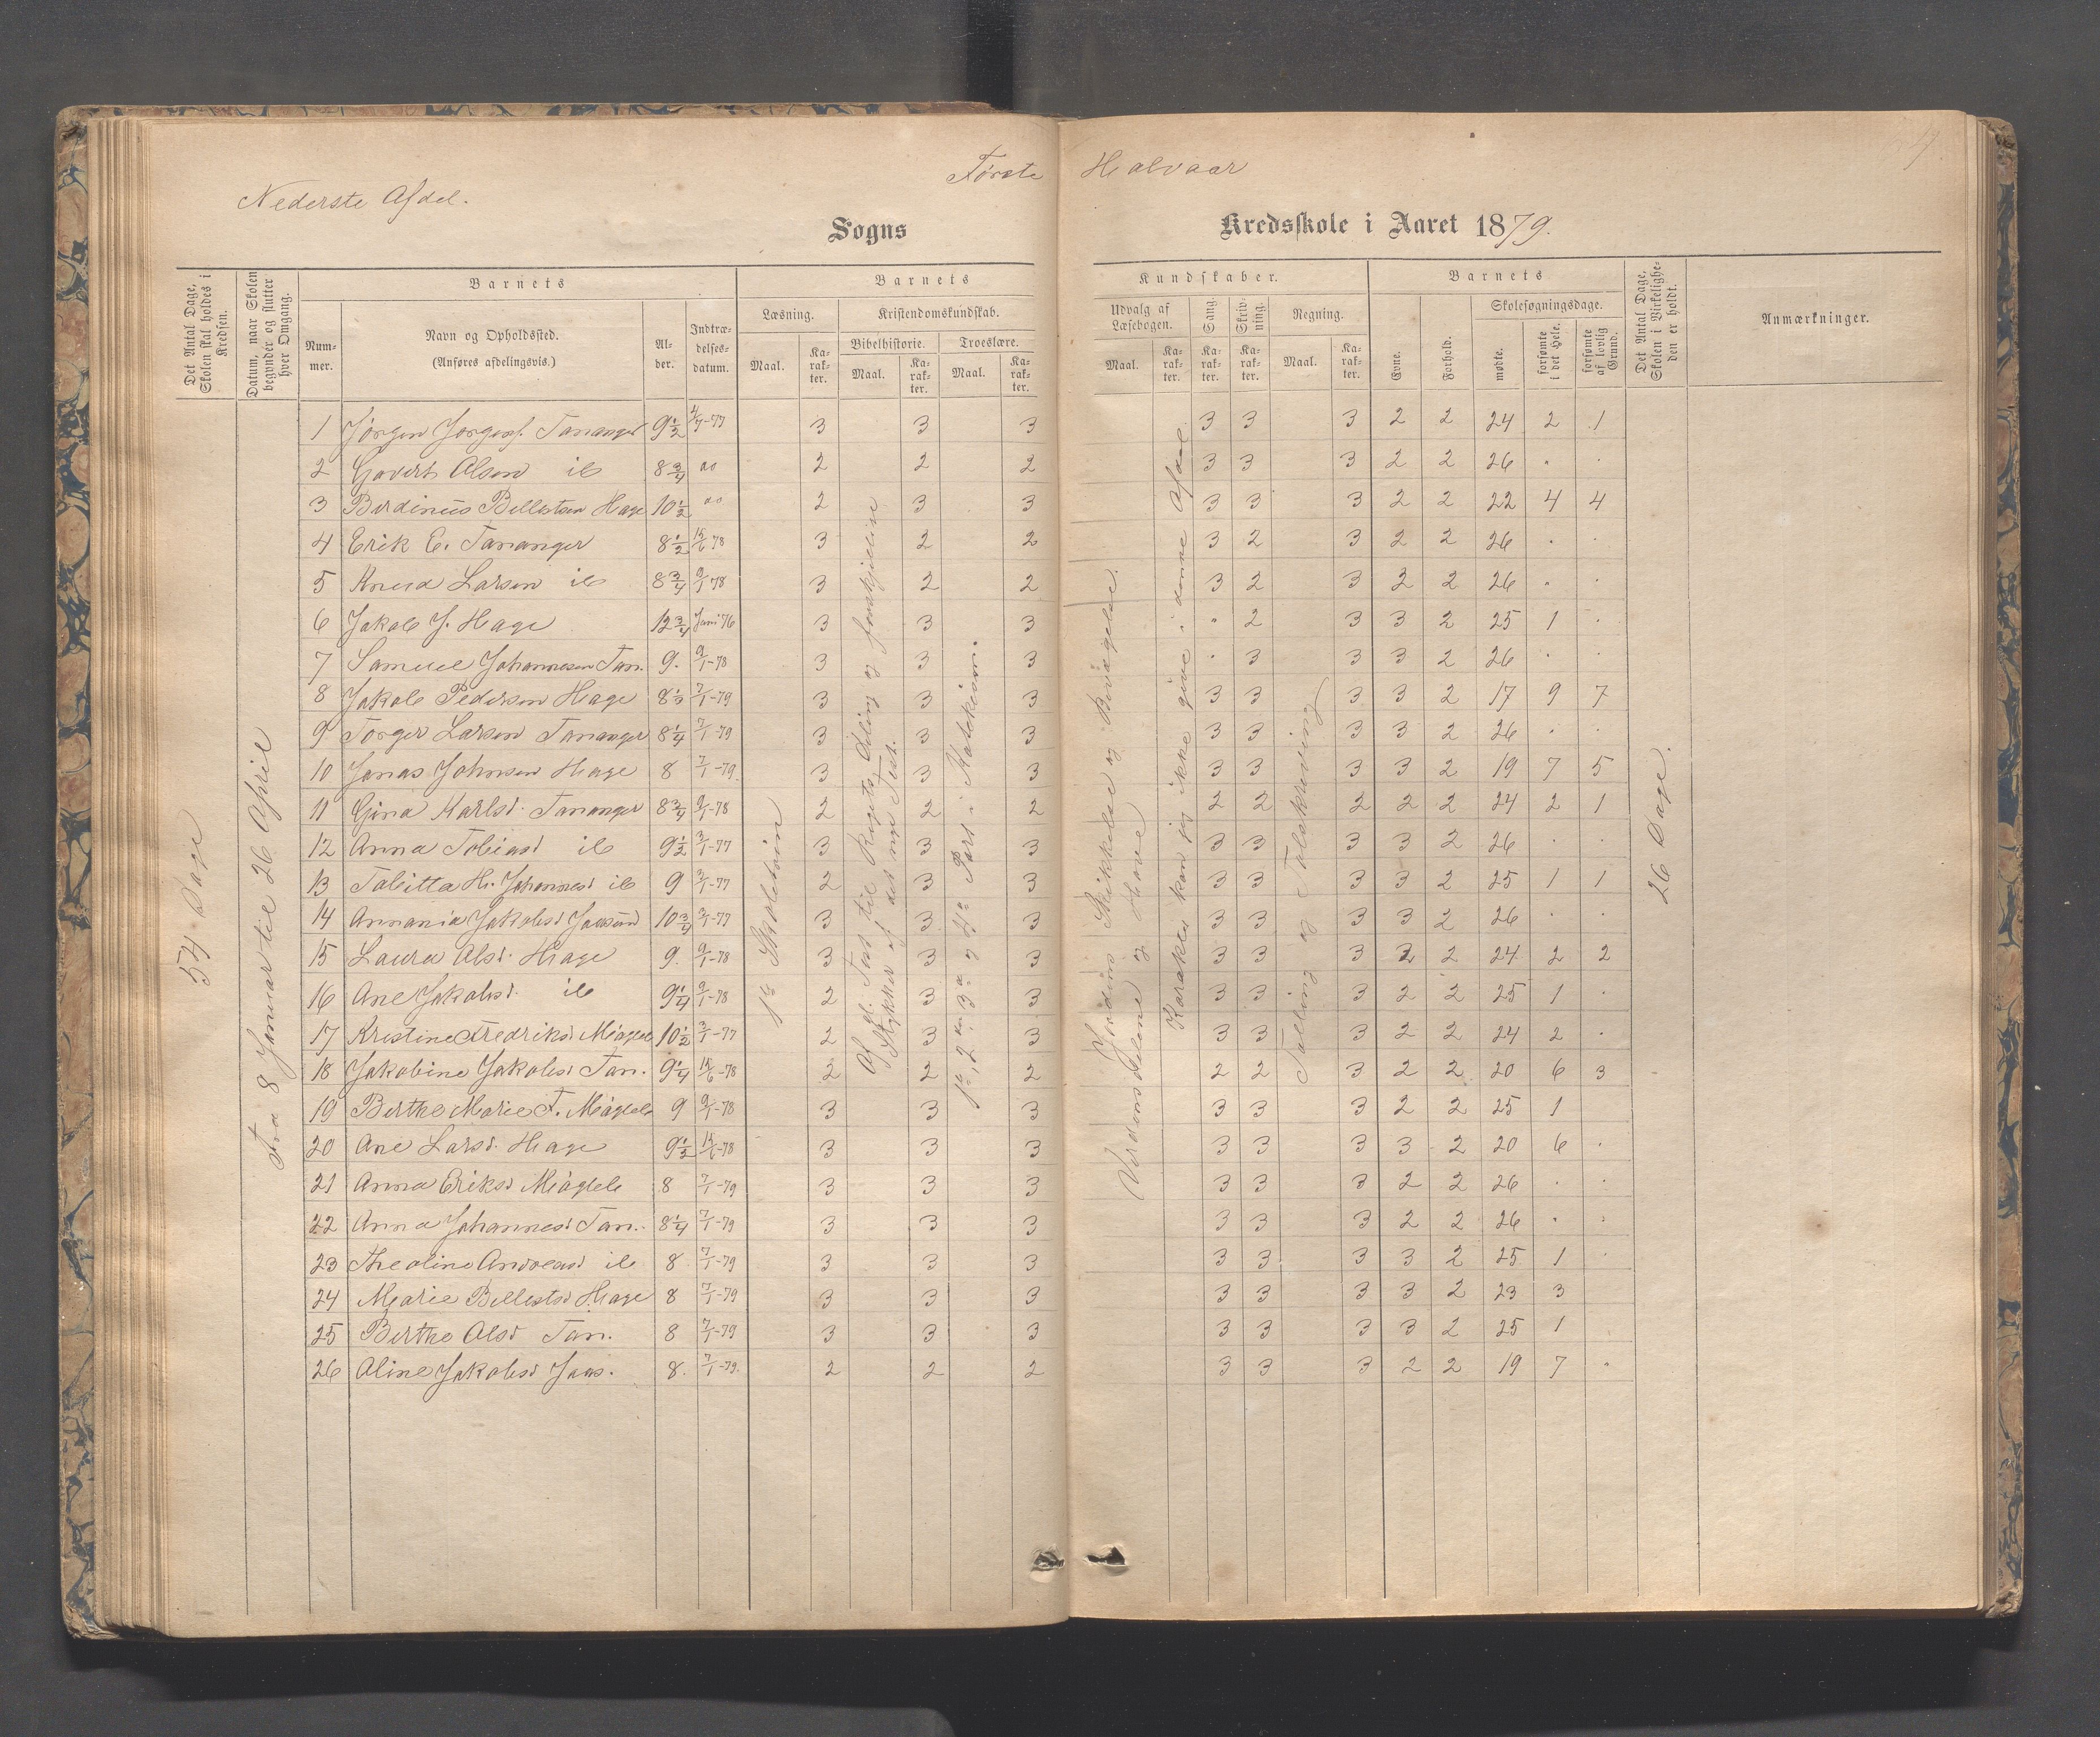 Første Halvaar
Nederste Afdel.
Sogns Kredsskole i Aaret 1879.
Det Antal Dage, Skolen skal holdes i Kredsen.
Datum, naar Skolen begynder og slutter hver Omgang.
Barnets
Nummer.
Navn og Opholdssted.
(Anføres afdelingsvis.)
Alder.
Indtrædelsesdatum.
Barnets Kundskaber.
Læsning.
Maal. Karakter.
Kristendomskundskab.
Bibelhistorie. Troeslære.
Maal. Karakter. Maal. Karakter.
Udvalg af Læsebogen.
Maal. Karakter.
Sang. Karakter.
Skrivning. Karakter.
Regning.
Maal. Karakter.
Barnets
Evne. Forhold.
Skolesøgningsdage.
mødte. forsømte i det Hele. forsømte af lovlig Grund.
Det Antal Dage, Skolen i Virkeligheden er holdt.
Anmærkninger.
54 Dage
Fra 8 Januar til 26 April
1ste Skoletrin
Af gl. Test til Rigets Deling og forskjellise
Stykker af det nye Test.
1ste, 2den, 3die og 4de Part i Katekism.
Jordens Skikkelse og Bevægelse.
Verdensdelene og Have
Karakter kan jeg ikke give i denne Afdel.
Tælling og Talskrivning
26 Dage.
1 Jørgen Jørgens. Tananger 9 1/2 4/7-77 3 3 3 3 3 3 2 2 24 2 1
2 Govert Olsen ib 8 3/4 do 2 2 2 3 3 3 2 2 26 . .
3 Berdinius Bellestsen Hage 10 1/2 do 2 3 3 3 3 3 2 2 22 4 4
4 Erik E. Tananger 8 1/2 15/6 78 3 2 2 3 2 3 2 2 26 . .
5 Knud Larsen ib 8 3/4 9/1 78 3 2 2 3 2 3 2 2 26 . .
6 Jakob J. Hage 12 3/4 Juni 76 3 3 3 " 2 3 3 2 25 1 .
7 Samuel Johannesen Tan. 9. 9/1-78 3 3 3 . 3 3 3 2 26 . .
8 Jakob Pedersen Hage 8 1/2 7/1-79 3 3 3 3 3 3 3 2 17 9 7
9 Torger Larsen Tananger 8 1/4 7/1-79 3 3 3 3 3 3 3 2 26 . .
10 Jonas Johnsen Hage 8 7/1-79. 3 3 3 3 3 3 3 2 19 7 5
11 Gina Karlsd. Tananger 8 3/4 9/1-78 2 2 2 2 2 2 2 2 24 2 1
12 Anna Tobiasd ib 9 1/2 3/1-77 3 3 3 3 3 3 3 2 26 . .
13 Tabitta H. Johannesd ib 9 3/1-77 2 3 3 3 3 3 3 2 25 1 1
14 Annania Jakobsd Jaasund 10 3/4 3/1-77 3 3 3 3 3 3 3 2 26 . .
15 Laura Olsd. Hage 9. 9/1-78 3 3 3 3 3 3 2 2 24 2 2
16 Ane Jakobsd. ib 9 1/4 9/1-78 2 3 3 3 3 3 2 2 25 1 .
17 Kristine Fredriksd Meagele 10 1/2 3/1-77 2 3 3 3 3 3 2 2 24 2 .
18 Jakobine Jakobsd Tan. 9 1/4 15/6-78 2 2 2 2 2 3 2 2 20 6 3
19 Berthe Marie F. Meagele 9 9/1-78 3 3 3 3 3 3 2 2 25 1
20 Ane Larsd. Hage 9 1/2 15/6-78 3 3 3 3 3 3 3 2 20 6 .
21 Anna Eriksd Meagele 8 7/1-79 3 3 3 3 3 3 2 2 26 . .
22 Anna Johannesd Tan. 8 1/4 7/1-79 3 3 3 3 3 3 2 2 26 . .
23 Theoline Andreasd ib 8 7/1-79 3 3 3 3 3 3 3 2 25 1 .
24 Marie Bellestsd Hage 8 7/1-79 3 3 3 3 3 3 3 2 23 3
25 Berthe Olsd Tan. 8 7/1-79 3 3 3 3 3 3 3 2 25 1
26 Aline Jakobsd Jaas. 8. 7/1-79. 2 2 2 3 3 3 2 2 19 7 "